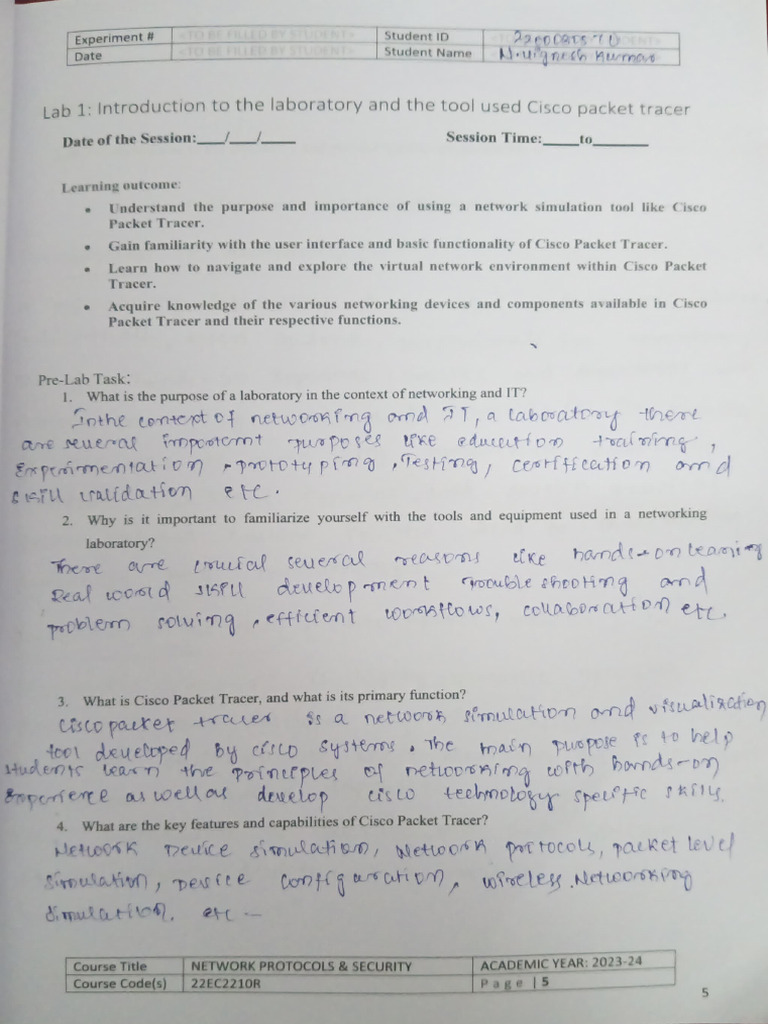 Experiment # <TO BE FILLED BY STUDENT> Student ID
Date <TO BE FILLED BY STUDENT> Student Name N.Vignesh Kumar
Lab 1: Introduction to the laboratory and the tool used Cisco packet tracer
Date of the Session:___/___/____ Session Time:____to______
Learning outcome:
• Understand the purpose and importance of using a network simulation tool like Cisco
Packet Tracer.
• Gain familiarity with the user interface and basic functionality of Cisco Packet Tracer.
• Learn how to navigate and explore the virtual network environment within Cisco Packet
Tracer.
• Acquire knowledge of the various networking devices and components available in Cisco
Packet Tracer and their respective functions.
Pre-Lab Task:
1. What is the purpose of a laboratory in the context of networking and IT?
Inthe context of networking and IT, a laboratory there
are several important purposes like education training,
Experimentation, prototyping, Testing, certification and
skill validation etc.
2. Why is it important to familiarize yourself with the tools and equipment used in a networking
laboratory?
There are crucial several reasons like hands-on learning
Real world skill development trouble shooting and
problem solving, efficient workflows, collaboration etc.
3. What is Cisco Packet Tracer, and what is its primary function?
Cisco packet tracer is a network simulation and visualization
tool developed by cisco systems. The main purpose is to help
students learn the principles of networking with hands-on
Experience as well as develop cisco technology specific skills.
4. What are the key features and capabilities of Cisco Packet Tracer?
Network Device simulation, Network protocols, packet level
simulation, Device configuration, wireless Networking
simulation. etc -
Course Title NETWORK PROTOCOLS & SECURITY ACADEMIC YEAR: 2023-24
Course Code(s) 22EC2210R Page | 5
5